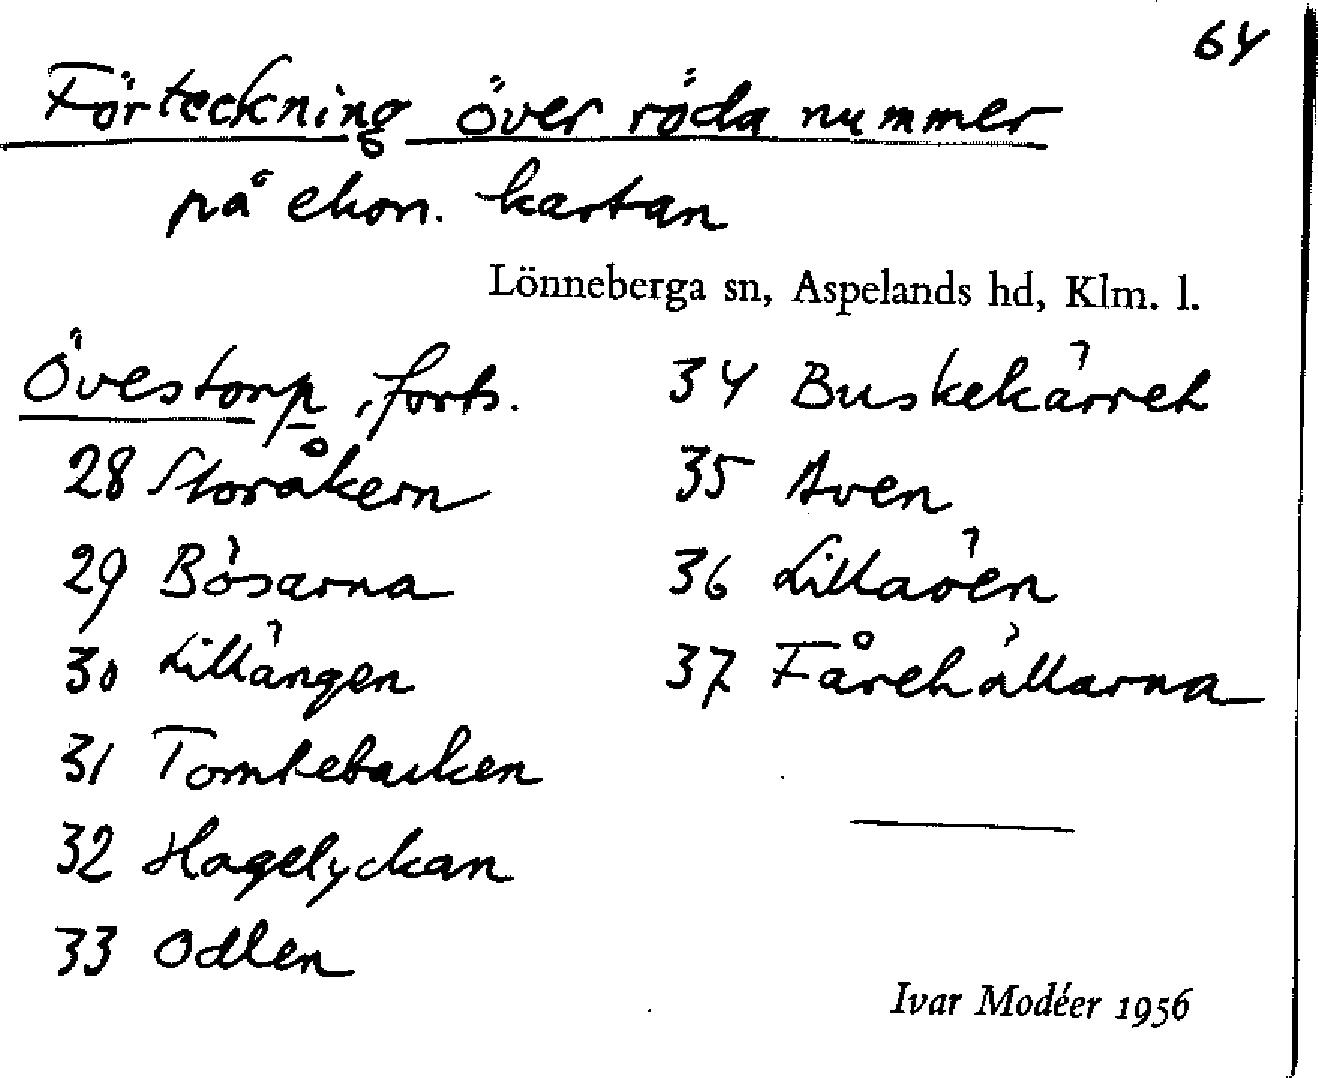 64
Förteckning över röda nummer
på ekon. kartan
Lönneberga sn, Aspelands hd, Klm. l.
Övestorp, forts.
28 Storåkern
29 Bösarna
30 Lillängen
31 Tomtebacken
32 Hagelyckan
33 Odlen
34 Buskekärret
35 Aven
36 Lillaöen
37 Fårehällarna
Ivar Modéer 1956